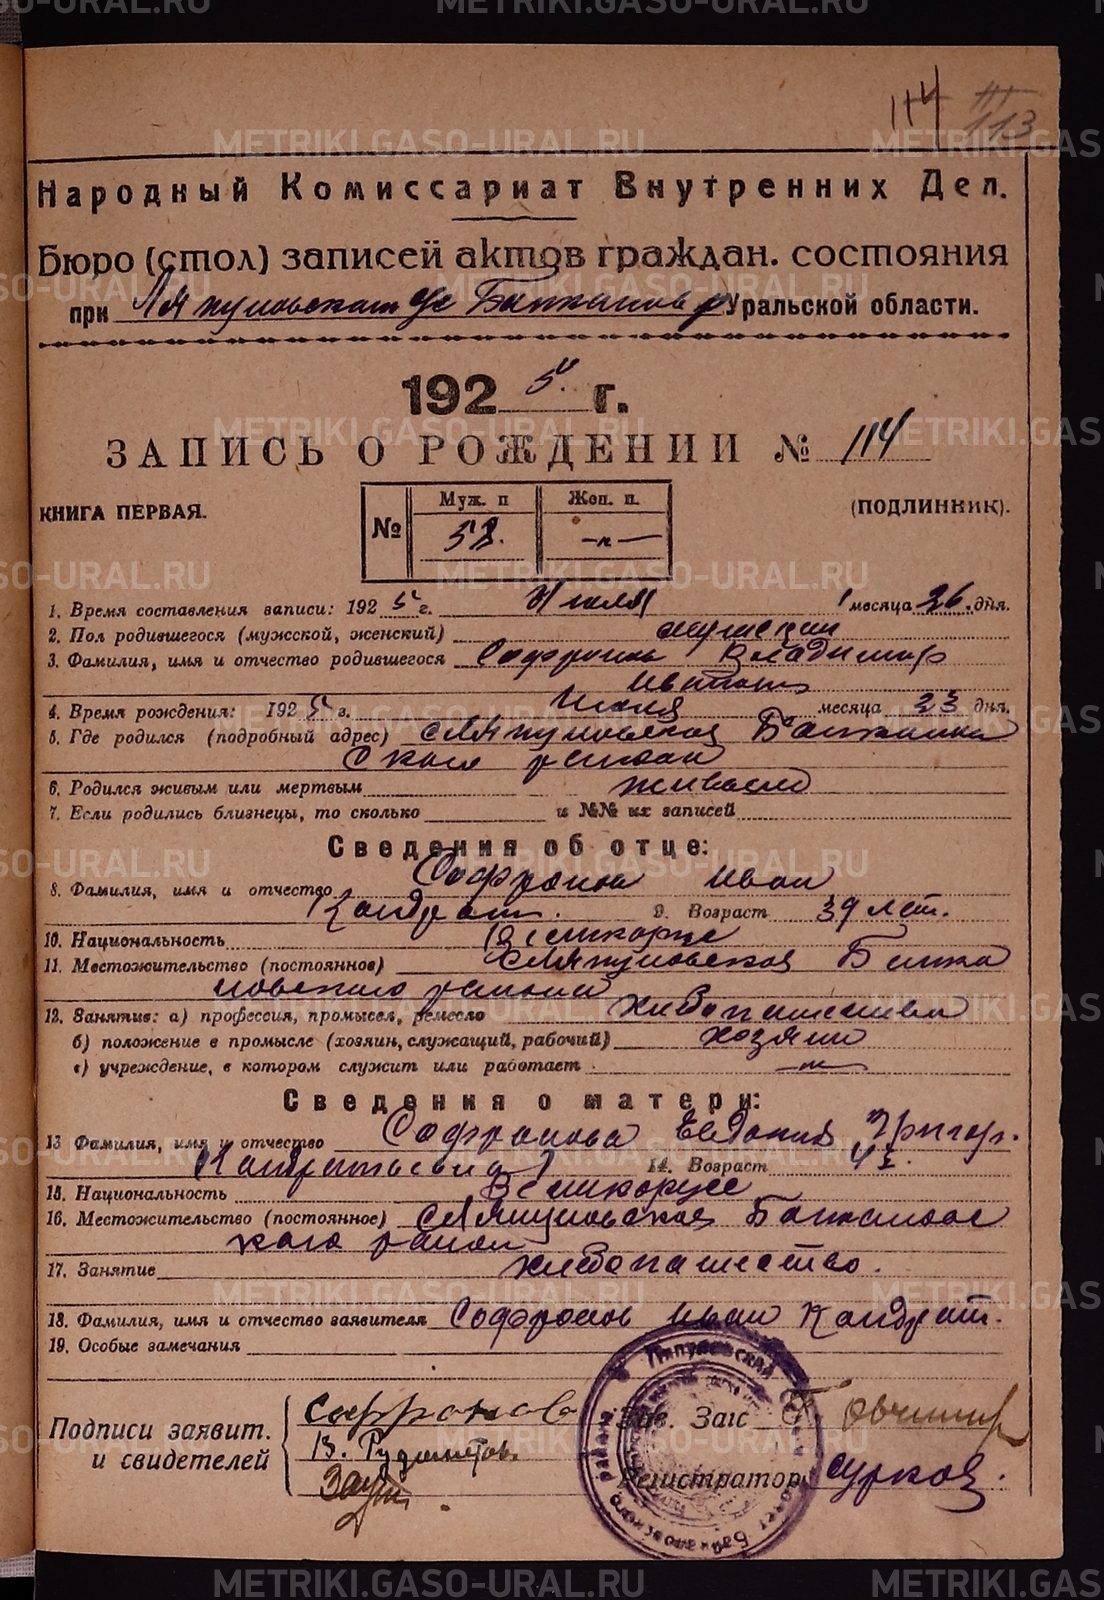 114 113
Народный Комиссариат Внутренних Дел.
Бюро (стол) записей актов граждан. состояния
при Ляпуновском с/с Байкаловс р Уральской области.
1925 г.
ЗАПИСЬ О РОЖДЕНИИ № 114
КНИГА ПЕРВАЯ.
(ПОДЛИННИК).
№ Муж. п Жен. п.
58. -"-
1. Время составления записи: 1925 г. Июля месяца 26 дня.
2. Пол родившегося (мужской, женский) мужской
3. Фамилия, имя и отчество родившегося Софронов Владимир
Иванов
4. Время рождения: 1925 г. Июля месяца 23 дня.
5. Где родился (подробный адрес) с Ляпуновское Байкалов
ского района
6. Родился живым или мертвым живым
7. Если родились близнецы, то сколько и №№ их записей
Сведения об отце:
8. Фамилия, имя и отчество Софронов Иван
Кондрат. 9. Возраст 39 лет.
10. Национальность Великорус
11. Местожительство (постоянное) с Ляпуновское Байка
ловского района
12. Занятие: а) профессия, промысел, ремесло хлебопашество
б) положение в промысле (хозяин, служащий, рабочий) хозяин
в) учреждение, в котором служит или работает -"-
Сведения о матери:
13 Фамилия, имя и отчество Софронова Евдокия Григор.
14. Возраст
15. Национальность Великорусс
16. Местожительство (постоянное) с Ляпуновское Байкаловс
кого район
17. Занятие хлебопашество.
18. Фамилия, имя и отчество заявителя Софронов Иван Кондрат.
19. Особые замечания
Подписи заявит.
и свидетелей
Софронов
В.
Зав. Загс
Регистратор Сурков.
Ляпуновский
METRIKI.GASO-URAL.RU